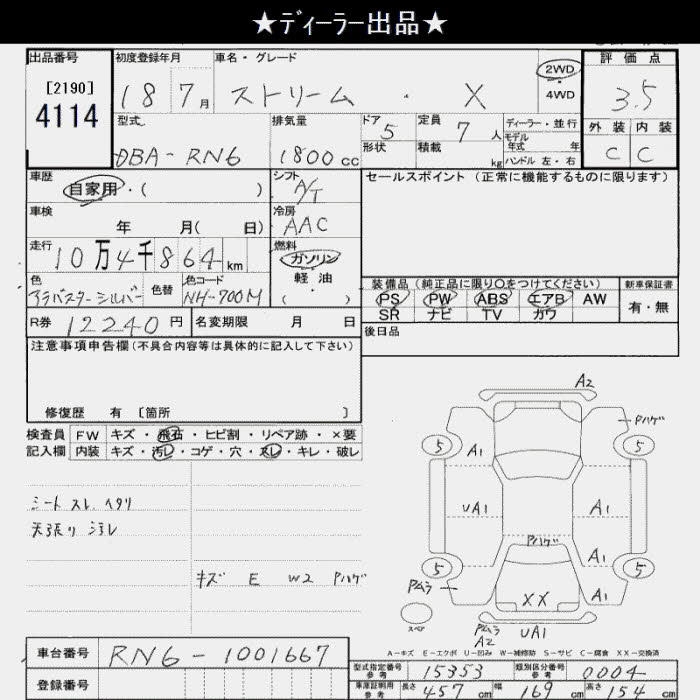 ★ディーラー出品★
出品番号
[2190]
4114
初度登録年月
18 7月
車名・グレード
ストリーム ・ X
2WD
4WD
評価点
3.5
外装 内装
C C
型式
DBA-RN6
排気量
1800cc
ドア 5
形状
定員 7人
積載 kg
ディーラー・並行
モデル年式 年
ハンドル 左・右
車歴
自家用・( )
シフト
A/T
セールスポイント(正常に機能するものに限ります)
車検
年 月( 日)
冷房
AAC
走行
10万4千864km
燃料
ガソリン
軽油
( ・ )
色
アラバスターシルバー
色替
色コード
NH-700M
装備品(純正品に限り○をつけてください)
新車保証書
PS PW ABS エアB AW
SR ナビ TV カワ
有・無
R券 12240円
名変期限 月 日
後日品
注意事項申告欄(不具合内容等は具体的に記入して下さい)
修復歴 有 [箇所 ]
検査員記入欄
FW キズ・飛石・ヒビ割・リペア跡・×要
内装 キズ・汚レ・コゲ・穴・スレ・キレ・破レ
シート スレ ヘタリ
天張り 汚レ
キズ E W2 Pハゲ
A2
Pハゲ
5 5
A1
UA1 A1
Pハゲ
A1
5 5
Pムラ
XX A1
スペア
Pムラ
A2
UA1
A-キズ E-エクボ U-凹み W-補修跡 S-サビ C-腐食 XX-交換済
車台番号 RN6-1001667
登録番号
型式指定番号 参考 15353
類別区分番号 参考 0004
車庫証明用 参考 長さ 457cm 幅 169cm 高さ 154cm